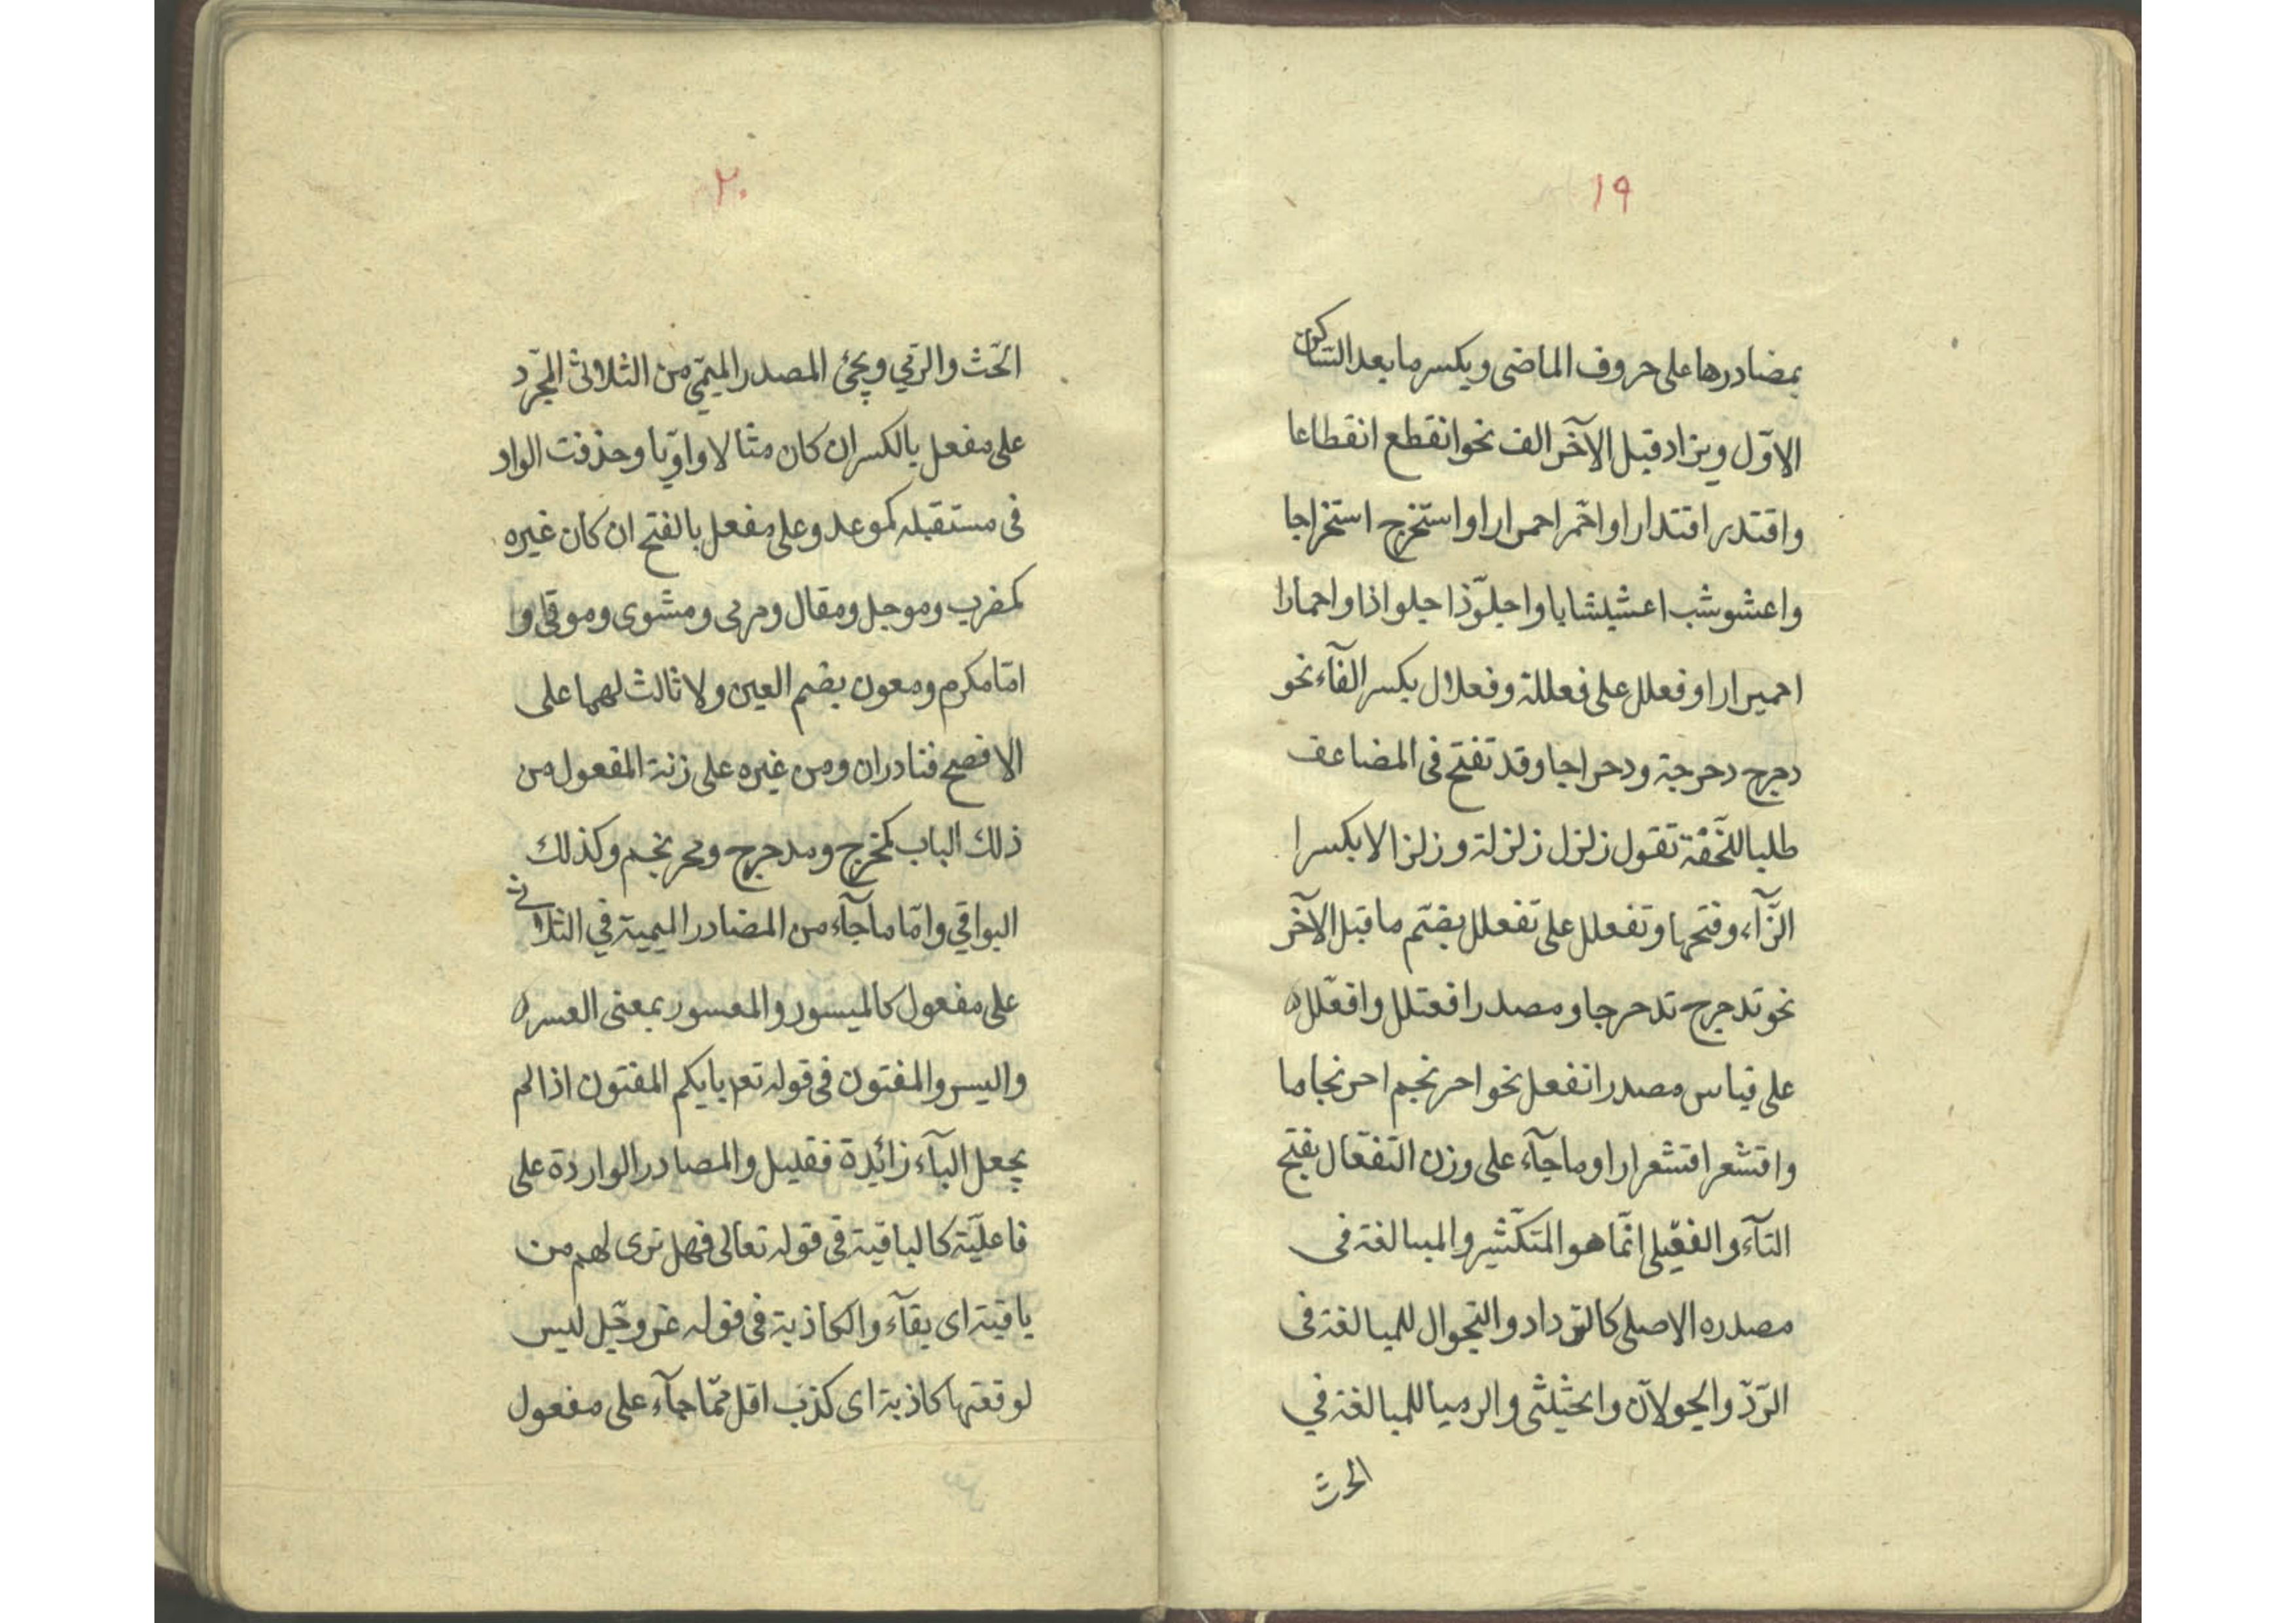 ١٩
بمصادرها على حروف الماضى ويكسر ما بعد الساكن
الاوّل ويزاد قبل الآخر الف نحو انقطع انقطاعا
واقتدر اقتدارا واحمّر احمرارا واستخرج استخراجا
واعشوشب اعشيشابا واجلوّذ اجلواذا واحمارا
احميرارا وفعلل على فعللة وفعلال بكسر الفآء نحو
دحرج دحرجة ودحراجا وقد تفتح فى المضاعف
طلبا للخفّة تقول زلزل زلزلة وزلزالا بكسر ا
الزّآء وفتحها وتفعلل على تفعلل بضّم ما قبل الآخر
نحو تدحرج تدحرجا ومصدر افعنلل وافعلّل
على قياس مصدر انفعل نحو احرنجم احرنجاما
واقشعر اقشعرارا وما جآء على وزن التفعّال بفتح
التآء والفعّيلى انّما هو المتكّثير والمبالغة فى
مصدره الاصلى كالترداد والتجوال للمبالغة فى
الرّدّ والجولآن والحثيثى والرميا للمبالغة في
الحث
٢٠
الحّث والرّمي ويجئ المصدر الميمّي من الثلاثى المجّرد
على مفعل بالكسر ان كان مثالا واويّا وحذفت الواو
فى مستقبله كموعد وعلى مفعل بالفتح ان كان غيره
كمضرب وموجل ومقال ومرمى ومشوى وموقى وا
امّا مكرم ومعون بضم العين ولا ثالث لهما على
الافصح فنادران ومن غيره على زنة المفعول من
ذلك الباب كمخرج ومدحرج ومحرنجم وكذلك
البواقي وامّا ما جآء من المصادر الميمية في الثلاثى
على مفعول كالميسور والمعسور بمعنى العسر
واليسر والمفتون فى قوله تعم بايكم المفتون اذا لم
يجعل البآء زائدة فقليل والمصادر الواردة على
فاعليّة كالباقية فى قوله تعالى فهل ترى لهم من
باقية اى بقآء والكاذبة فى قوله عز وجّل ليس
لوقعتها كاذبة اى كذب اقل ممّا جآء على مفعول